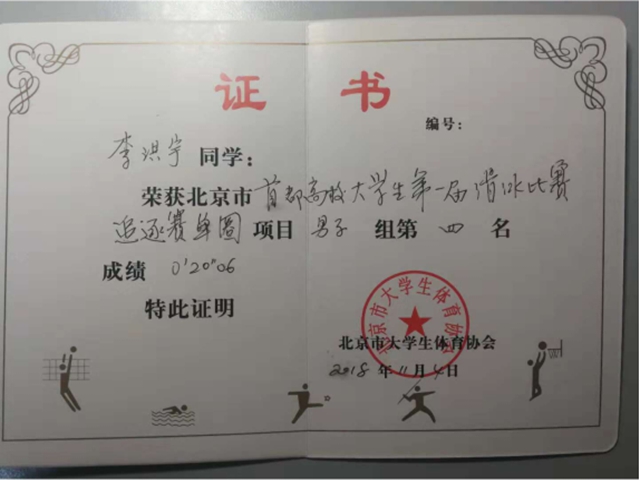 证 书
编号：
李洪宇 同学：
荣获北京市 首都高校大学生第一届滑冰比赛
追逐赛单圈 项目 男子 组第 四 名
成绩 0'20"06
特此证明
北京市大学生体育协会
北京市大学生体育协会
2018 年 11 月 4 日